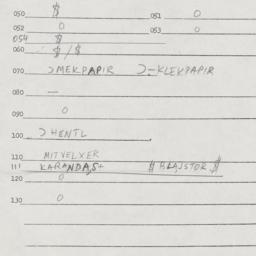 050 $ 051 0
052 0 053 0
054 $
060 $/$
070 ɔMEKPAPIR ɔ-KLEKPAPIR
080 —
090 0
100 ɔHENTL
110 MITVELXER
111 KARANDAS+ # BLAJSTOR $
120 0
130 0